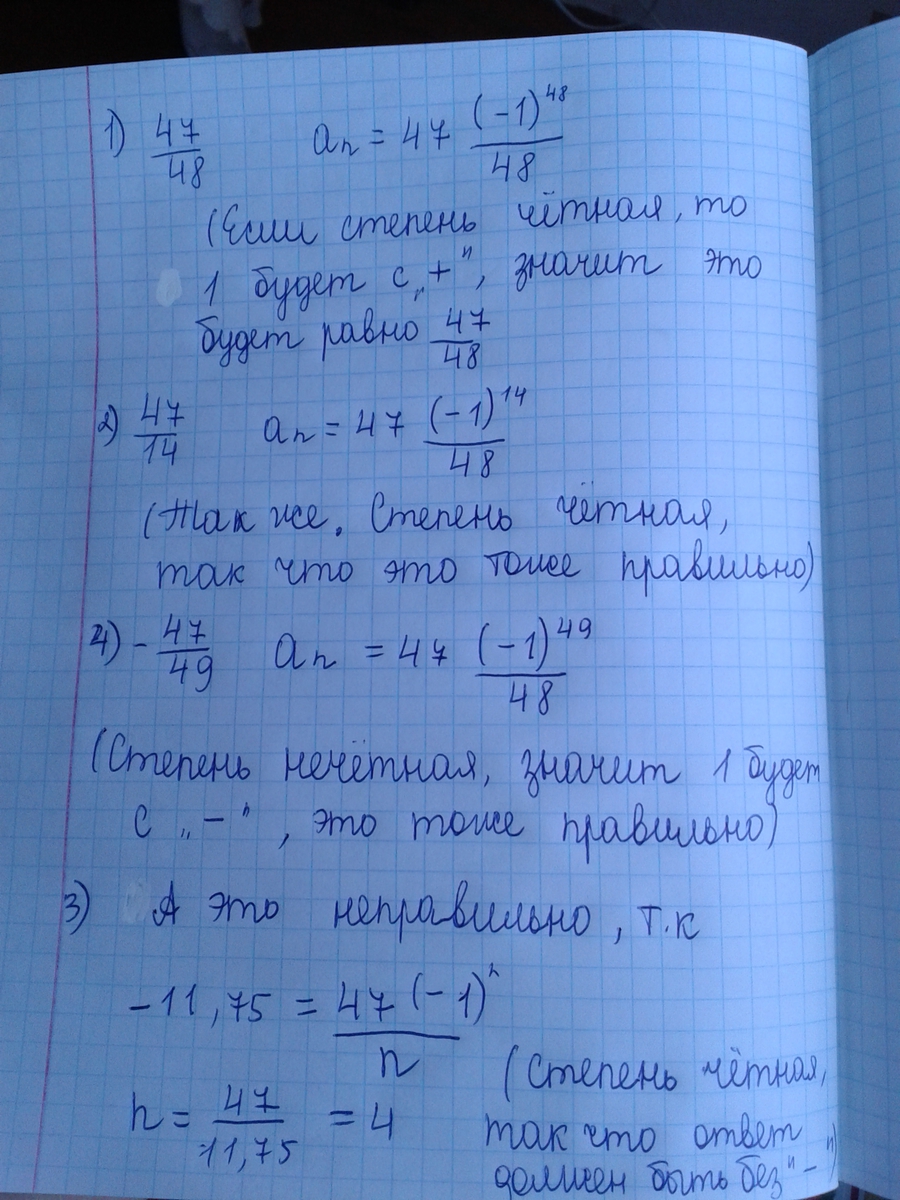 1) 47/48 aₙ = 47 (-1)⁴⁸/48
(Если степень чётная, то
1 будет с „+", значит это
будет равно 47/48
2) 47/14 aₙ = 47 (-1)¹⁴/48
(Так же. Степень чётная,
так что это тоже правильно)
4) - 47/49 aₙ = 47 (-1)⁴⁹/48
(Степень нечётная, значит 1 будет
с „-", это тоже правильно)
3) А это неправильно, т.к
-11,75 = 47 (-1)ⁿ/n
n = 47/11,75 = 4
(Степень чётная,
так что ответ
должен быть без "-")